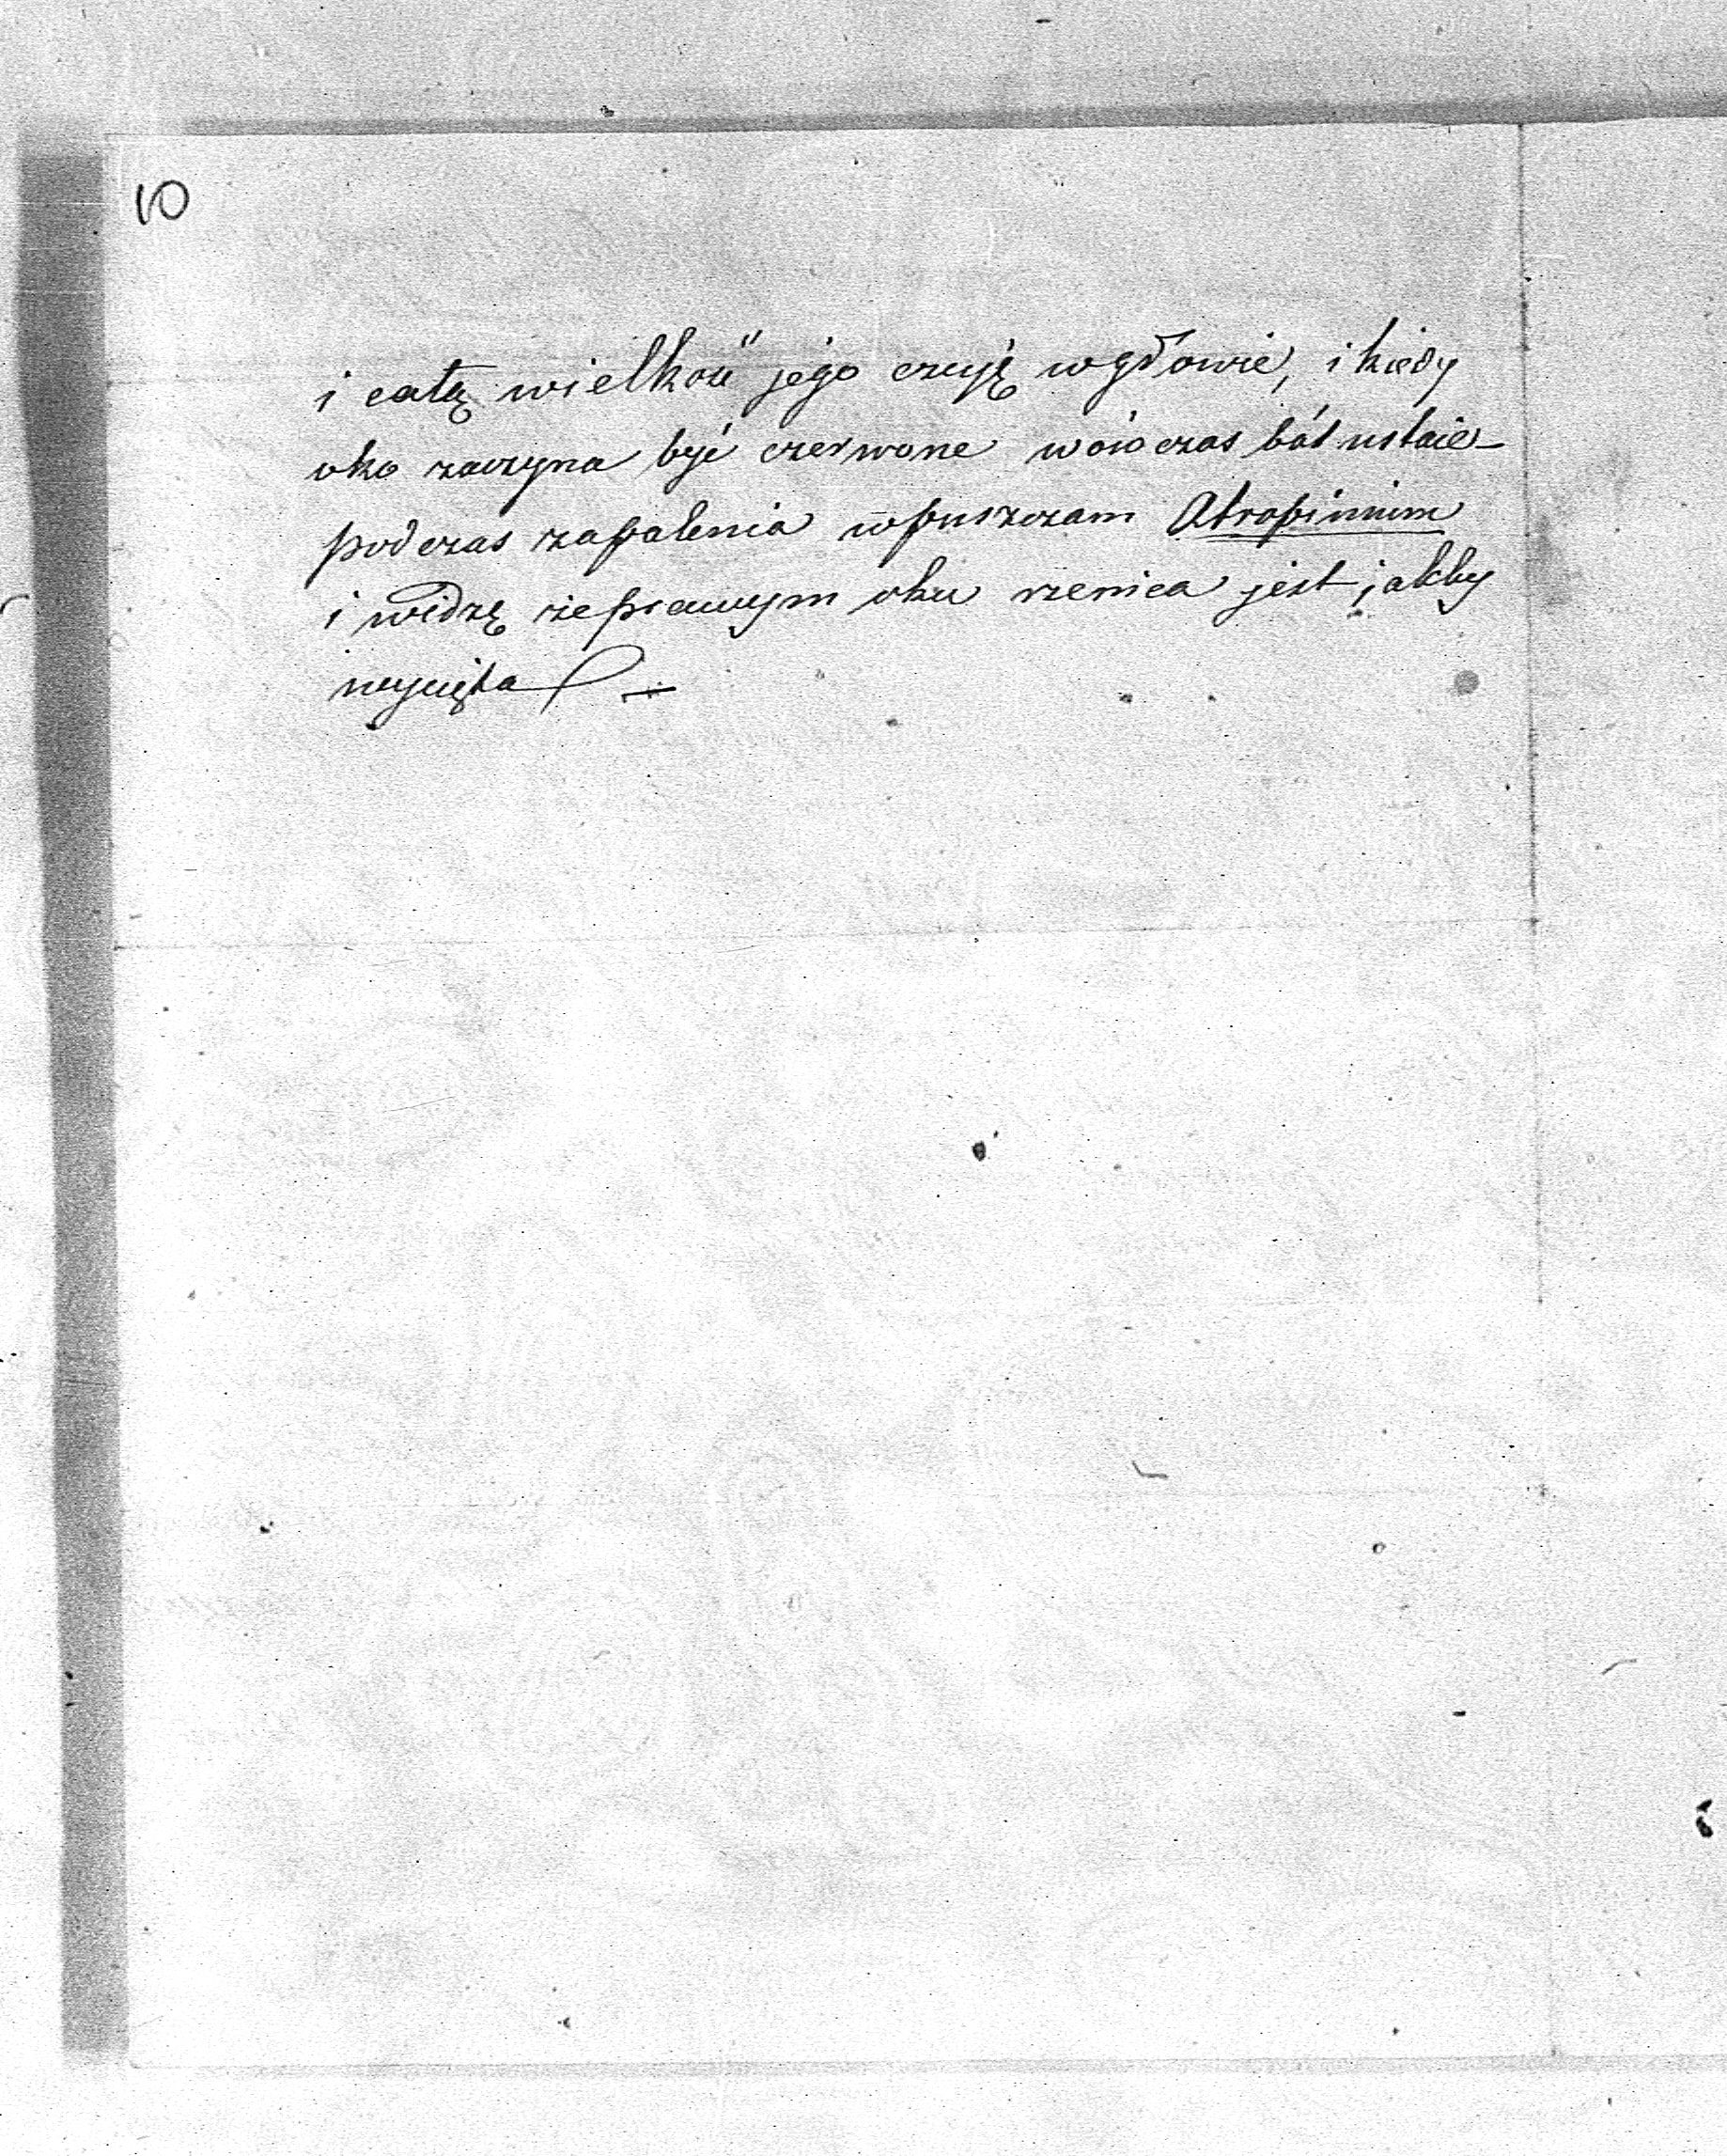 10
i całą wielkość jego czuję w głowie, i kiedy
oko zaczyna być czerwone wówczas ból ustaie
podczas zapalenia wpuszczam Atropinium
i widzę że prawym oku rzenica jest jakby
wycięta —